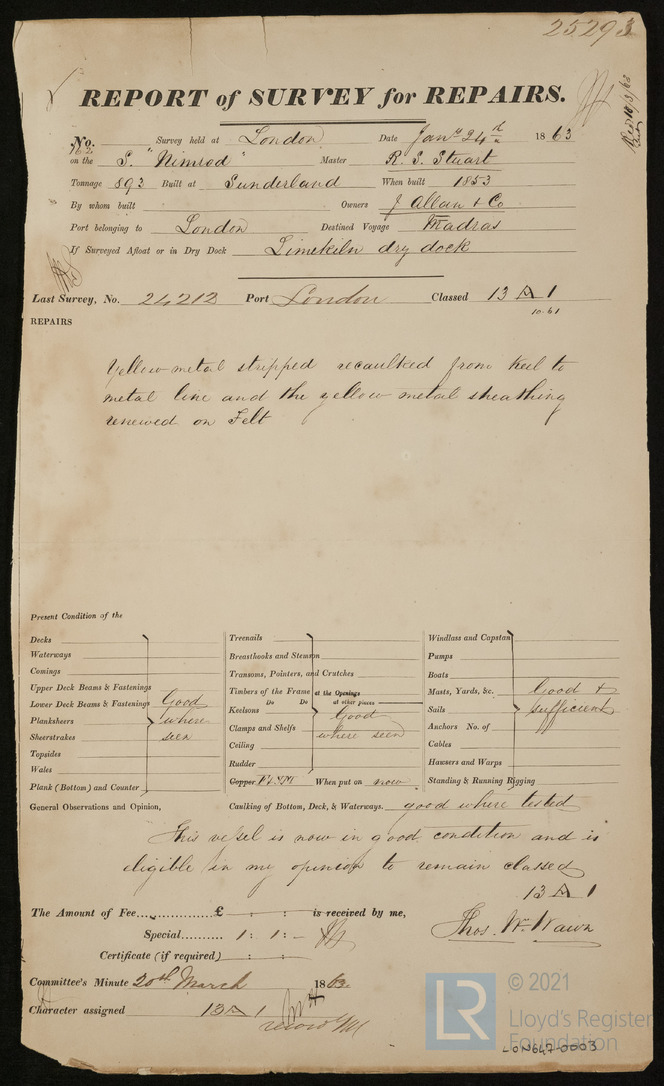 25293
REPORT of SURVEY for REPAIRS.
No. 162 Survey held at London Date Jany 24th 1863
on the S. "Nimrod" Master R. S. Stuart
Tonnage 893 Built at Sunderland When built 1853
By whom built Owners J Allan & Co
Port belonging to London Destined Voyage Madras
If Surveyed Afloat or in Dry Dock Limekiln dry dock
Last Survey, No. 24212 Port London Classed 13 A 1
10.61
REPAIRS
Yellow metal stripped recaulked from Keel to
metal line and the yellow metal sheathing
renewed on Felt
Present Condition of the
Decks
Waterways
Comings
Upper Deck Beams & Fastenings
Lower Deck Beams & Fastenings
Planksheers
Sheerstrakes
Topsides
Wales
Plank (Bottom) and Counter
Good
where
seen
Treenails
Breasthooks and Stemson
Transoms, Pointers, and Crutches
Timbers of the Frame at the Openings
Do Do at other places
Keelsons
Clamps and Shelfs
Ceiling
Rudder
Good
where seen
Copper When put on now
Windlass and Capstan
Pumps
Boats
Masts, Yards, &c.
Sails
Anchors No. of
Cables
Hawsers and Warps
Standing & Running Rigging
Good &
sufficient
General Observations and Opinion, Caulking of Bottom, Deck, & Waterways. good where tested
This vessel is now in good condition and is
eligible in my opinion to remain classed
13 A 1
The Amount of Fee £ : : is received by me,
Thos. Wm. Wawn
Special 1 : 1 : -
Certificate (if required) : :
Committee's Minute 20th March 1863
Character assigned 13 A 1
© 2021
LR
Lloyd's Register
Foundation
LON647-0003